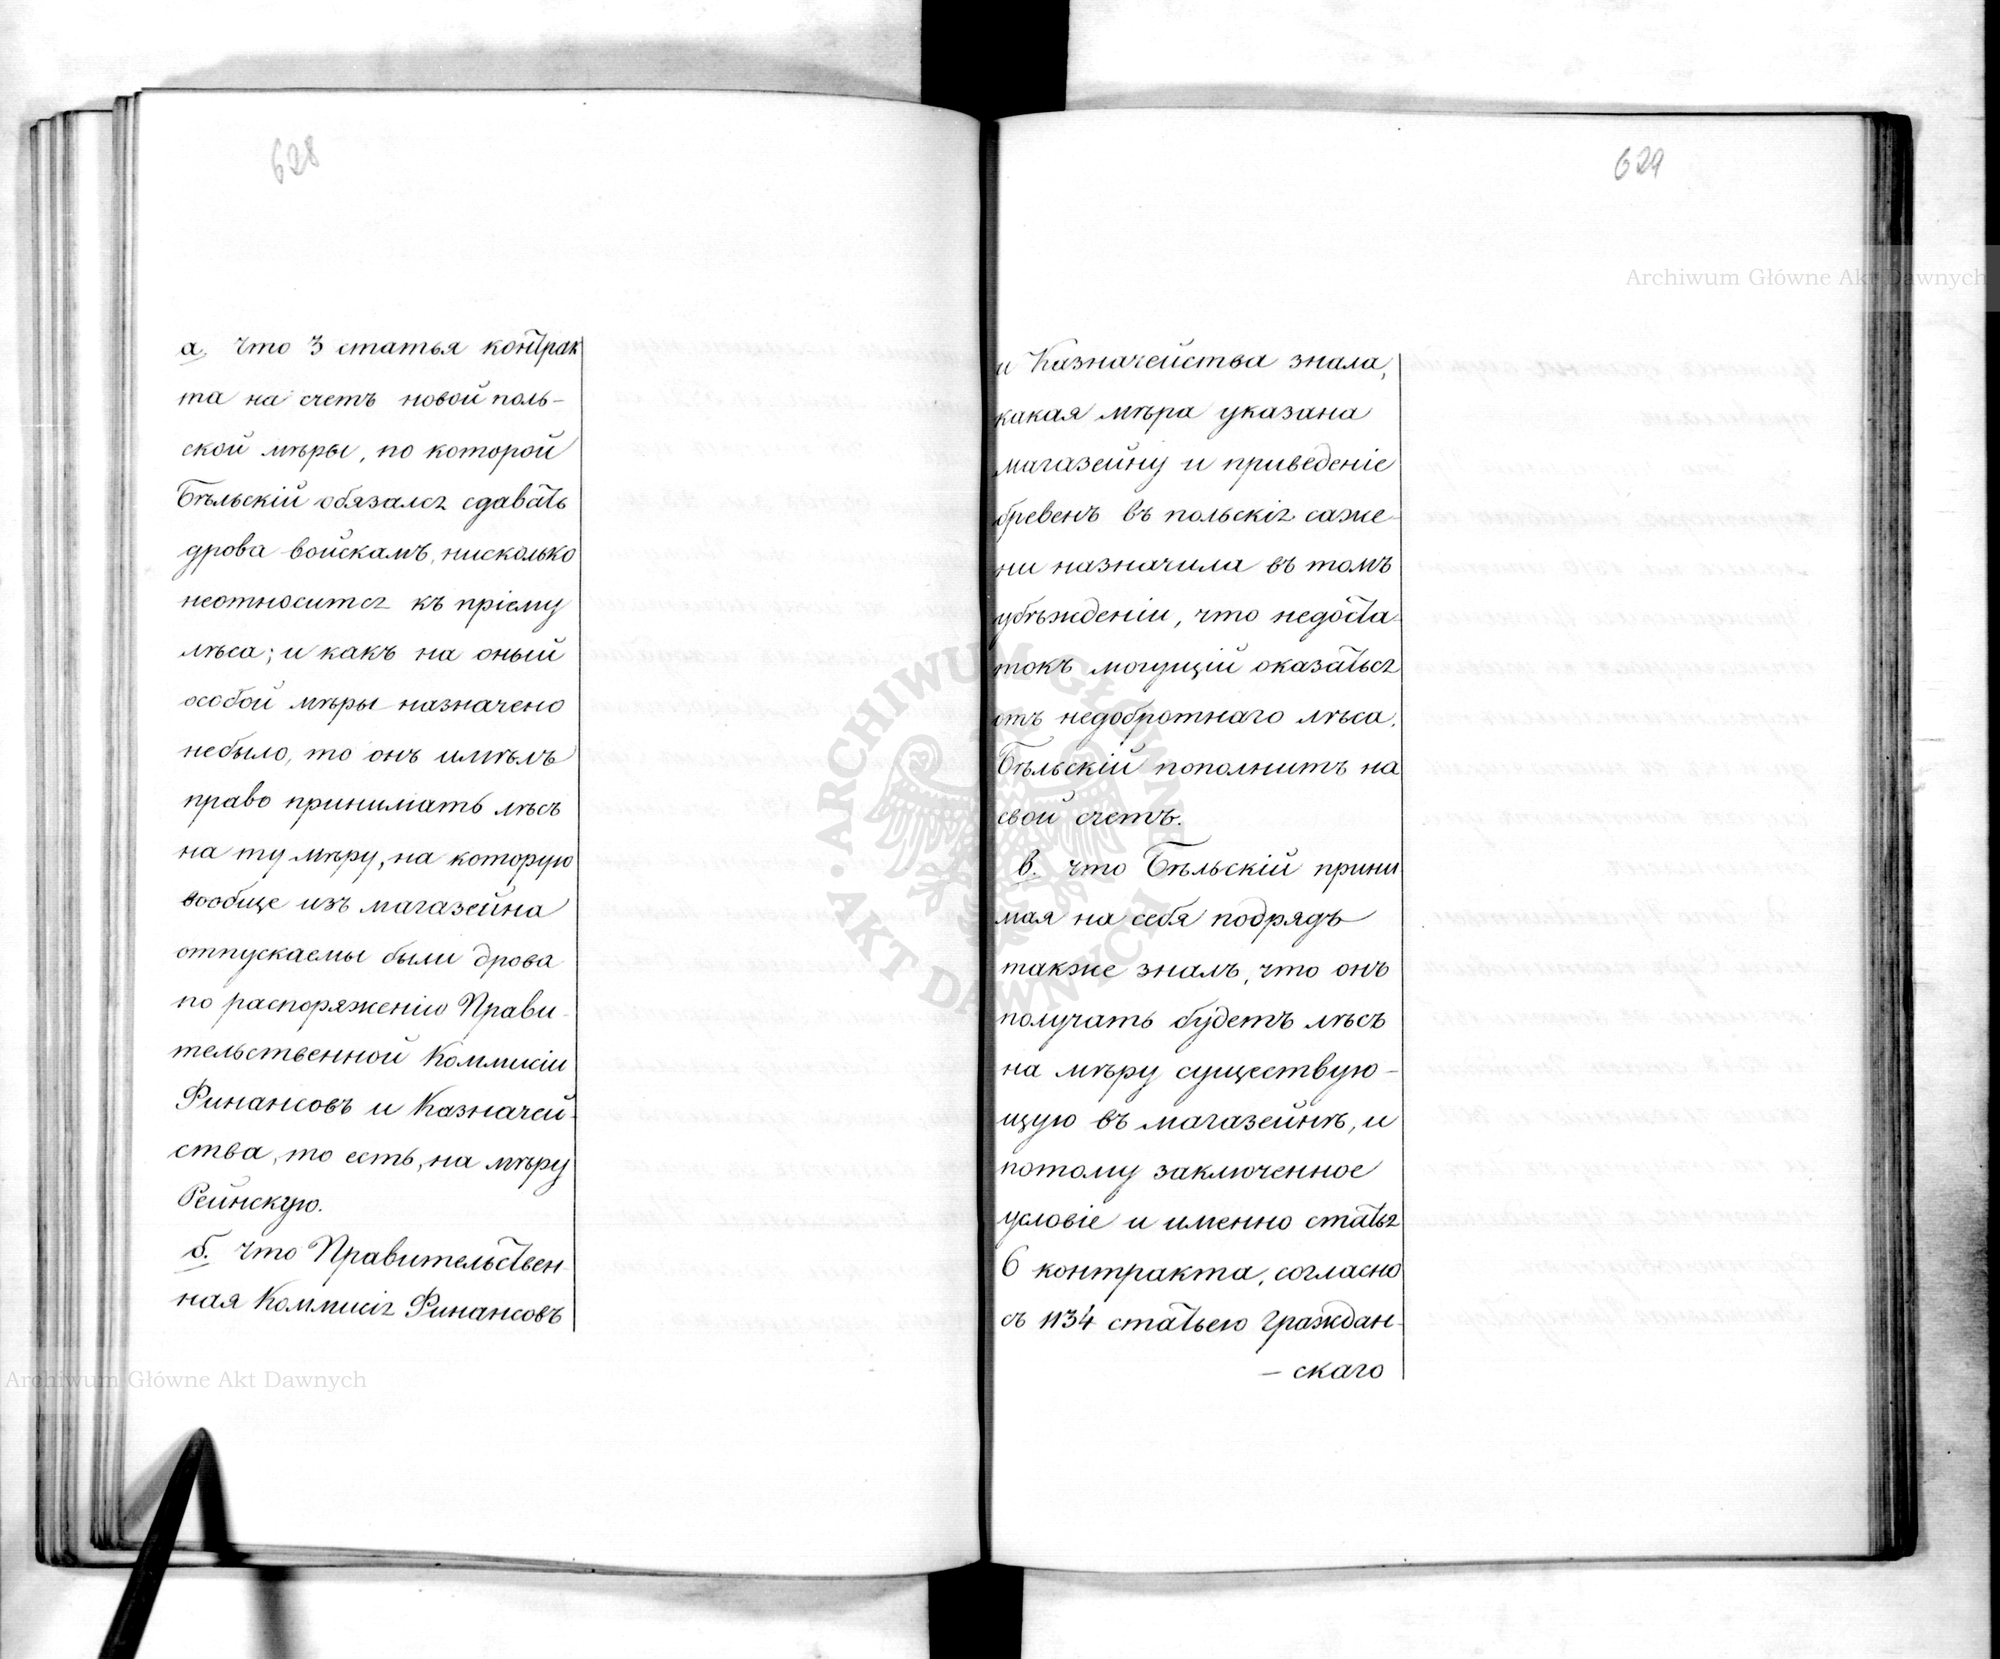 628
а, что 3 статья контрак
та на счетъ новой поль-
ской мѣры, по которой
Бѣльскій обязался сдавать
дрова войскамъ, нисколько
неотносится къ пріему
лѣса; и какъ на оный
особой мѣры назначено
небыло, то онъ имѣлъ
право принимать лѣсъ
на ту мѣру, на которую
вообще изъ магазейна
отпускаемы были дрова
по распоряженію Прави-
тельственной Коммисіи
Финансовъ и Казначей-
ства, то есть, на мѣру
Рейнскую.
б. что Правительствен-
ная Коммисія Финансовъ
629
и Казначейства знала,
какая мѣра указана
магазейну и приведеніе
бревенъ въ польскія саже-
ни назначила въ томъ
убѣжденіи, что недоста-
токъ могущій оказаться
отъ недобротнаго лѣса,
Бѣльскій пополнитъ на
свой счетъ.
в. что Бѣльскій прини
мая на себя подрядъ
также зналъ, что онъ
получать будетъ лѣсъ
на мѣру существую-
щую въ магазейнѣ, и
потому заключенное
условіе и именно статья
6 контракта, согласно
съ 1134 статьею Граждан-
- скаго
Archiwum Główne Akt Dawnych
Archiwum Główne Akt Dawnych
ARCHIWUM GŁÓWNE AKT DAWNYCH